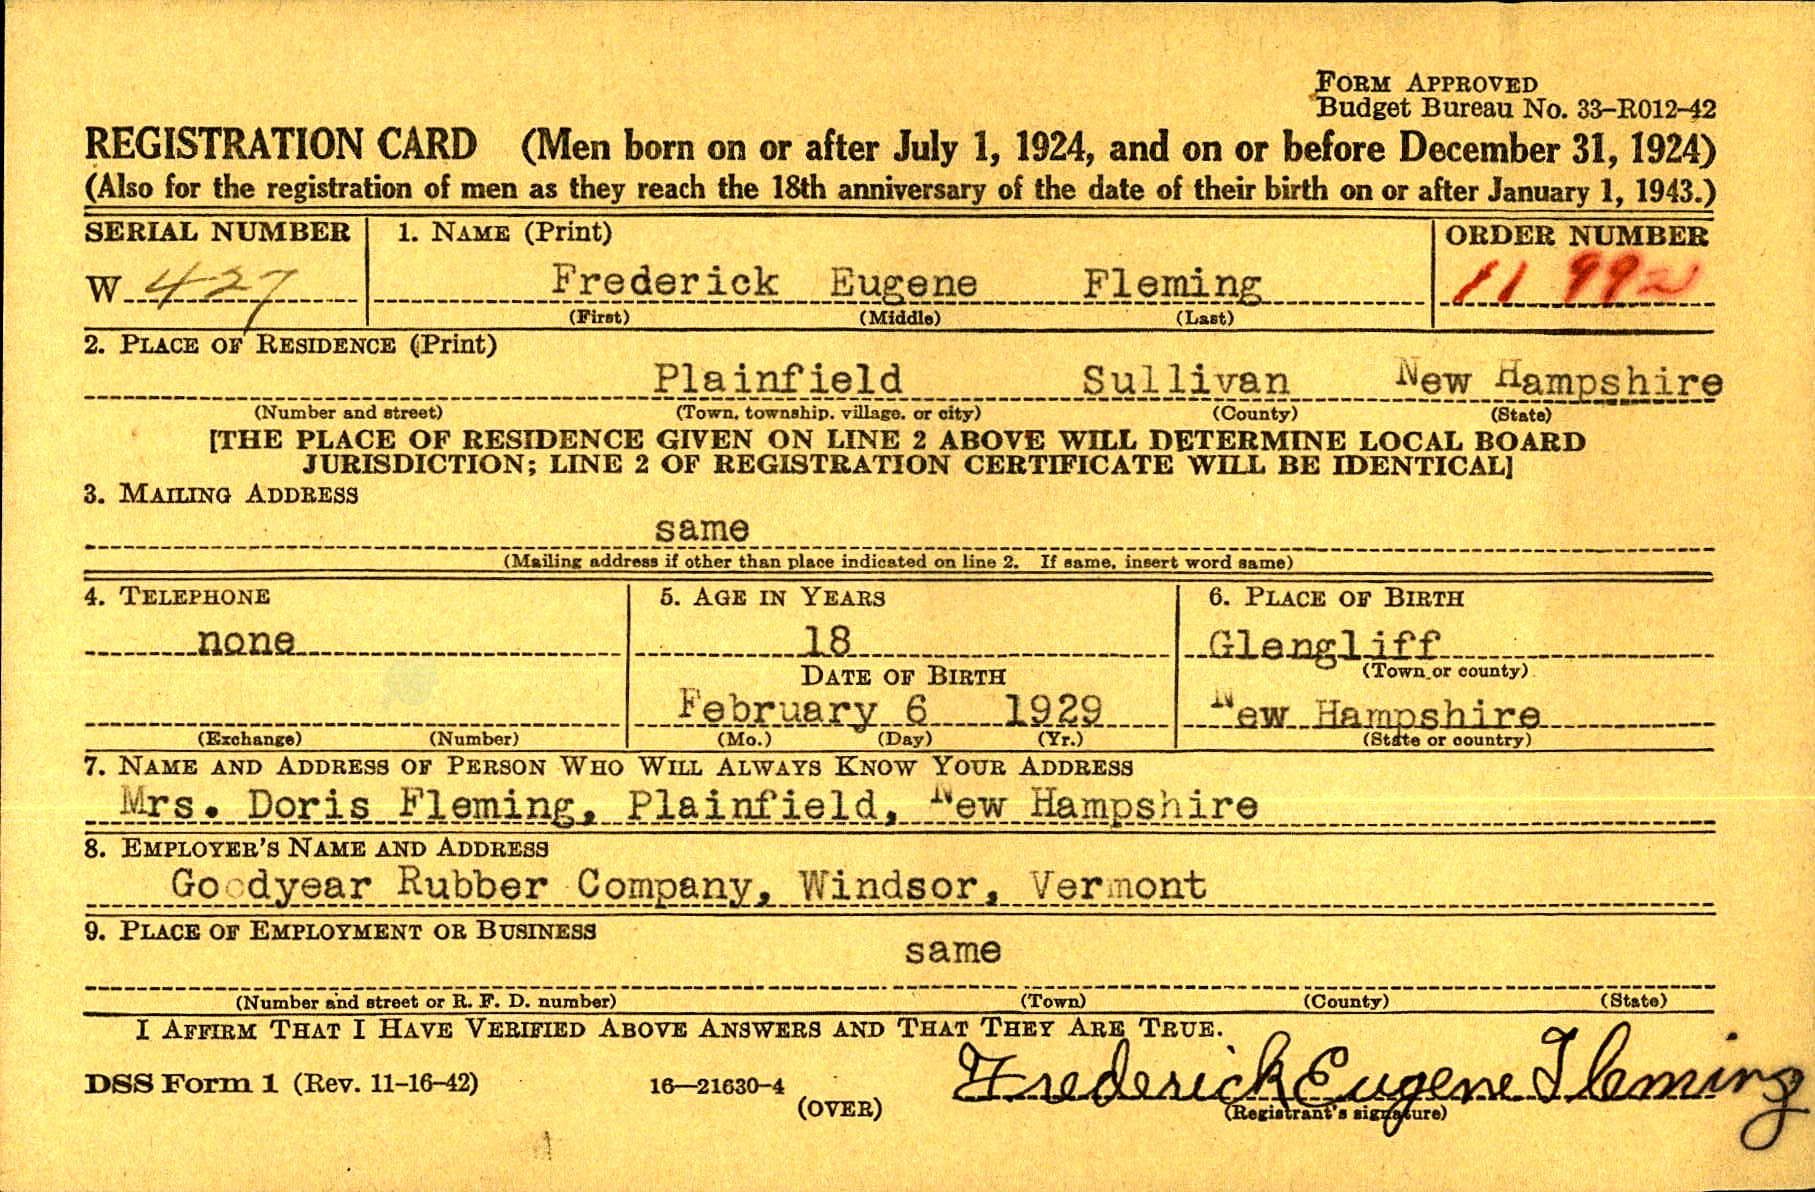 FORM APPROVED
Budget Bureau No. 33–R012–42
REGISTRATION CARD (Men born on or after July 1, 1924, and on or before December 31, 1924)
(Also for the registration of men as they reach the 18th anniversary of the date of their birth on or after January 1, 1943.)
SERIAL NUMBER 1. NAME (Print) ORDER NUMBER
W 427 Frederick Eugene Fleming 11 992
(First) (Middle) (Last)
2. PLACE OF RESIDENCE (Print)
Plainfield Sullivan New Hampshire
(Number and street) (Town, township, village, or city) (County) (State)
[THE PLACE OF RESIDENCE GIVEN ON LINE 2 ABOVE WILL DETERMINE LOCAL BOARD
JURISDICTION; LINE 2 OF REGISTRATION CERTIFICATE WILL BE IDENTICAL]
3. MAILING ADDRESS
same
(Mailing address if other than place indicated on line 2. If same, insert word same)
4. TELEPHONE 5. AGE IN YEARS 6. PLACE OF BIRTH
none 18 Glengliff
DATE OF BIRTH (Town or county)
February 6 1929 New Hampshire
(Exchange) (Number) (Mo.) (Day) (Yr.) (State or country)
7. NAME AND ADDRESS OF PERSON WHO WILL ALWAYS KNOW YOUR ADDRESS
Mrs. Doris Fleming, Plainfield, New Hampshire
8. EMPLOYER'S NAME AND ADDRESS
Goodyear Rubber Company, Windsor, Vermont
9. PLACE OF EMPLOYMENT OR BUSINESS
same
(Number and street or R. F. D. number) (Town) (County) (State)
I AFFIRM THAT I HAVE VERIFIED ABOVE ANSWERS AND THAT THEY ARE TRUE.
DSS Form 1 (Rev. 11–16–42) 16—21630-4 Frederick Eugene Fleming
(OVER) (Registrant's signature)